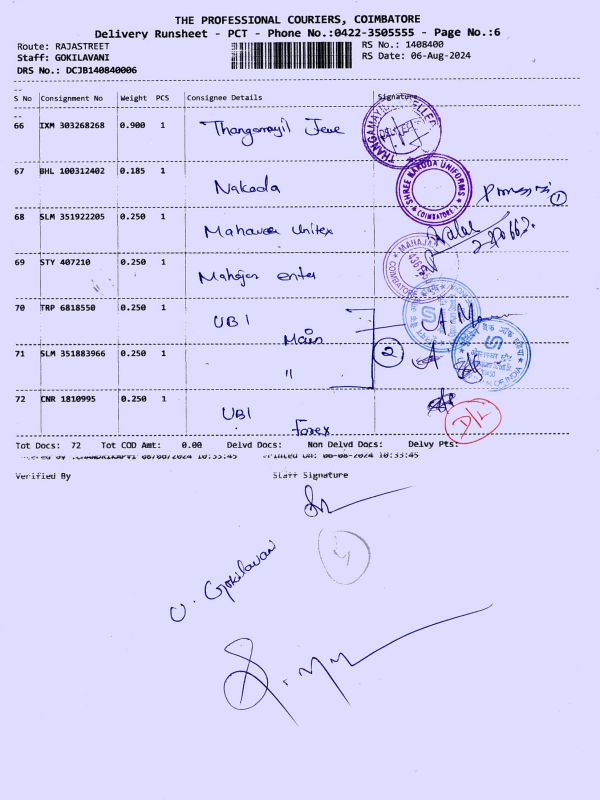 THE PROFESSIONAL COURIERS, COIMBATORE
Delivery Runsheet - PCT - Phone No.:0422-3505555 - Page No.:6
Route: RAJASTREET RS No.: 1408400
Staff: GOKILAVANI RS Date: 06-Aug-2024
DRS No.: DCJB140840006
S No Consignment No Weight PCS Consignee Details Signature
66 IXM 303268268 0.900 1 Thangamayil Jewe
67 BHL 100312402 0.185 1 Nakoda
SHREE NAKODA UNIFORMS
COIMBATORE-1
1
68 SLM 351922205 0.250 1 Mahaveer Unitex
69 STY 407210 0.250 1 Mahajan enter
MAHAJAN
COIMBATORE
70 TRP 6818550 0.250 1 UBI
Main
71 SLM 351883966 0.250 1 "
2
72 CNR 1810995 0.250 1 UBI
Forex
D/L
Tot Docs: 72 Tot COD Amt: 0.00 Delvd Docs: Non Delvd Docs: Delvy Pts:
Printed On: 06-08-2024 10:33:45
Verified By Staff Signature
U. Gokilavani